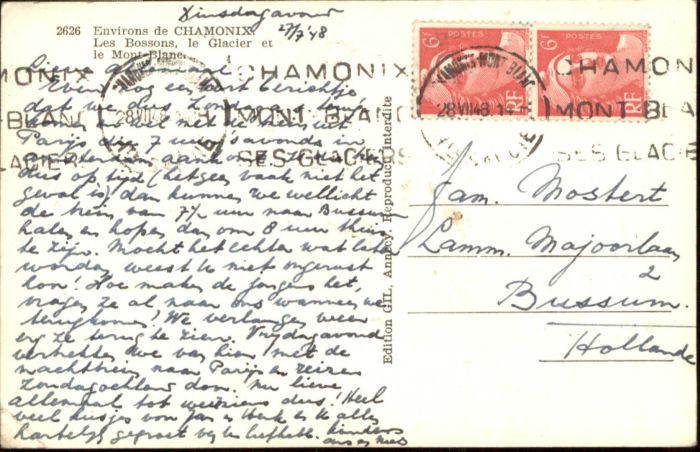 Dinsdagavond
27/7 '48
2626 Environs de CHAMONIX
Les Bossons, le Glacier et
le Mont-Blanc.
Lieve allemaal
Even nog een kort berichtje
dat we dus Zondag a.s. terug
komen. Wel met de trein uit
Parijs die 7 uur 's avonds in
Amsterdam aankomt. Is die
dus op tijd (hetgeen vaak niet het
geval is) dan kunnen we wellicht
de trein van 7½ uur naar Bussum
halen en hopen dan om 8 uur thuis
te zijn. Mocht het echter wat later
worden, weest U niet ongerust
hoor! Hoe maken de jongens het,
vragen ze al naar ons wanneer we
terugkomen? We verlangen weer
erg ze terug te zien. Vrijdagavond
vertrekken we van hier met de
nachttrein naar Parijs en reizen
Zondagochtend door. Nu lieve
allemaal tot weerziens dus! Heel
veel kusjes voor Jan en Henk en U alles
hartelijk gegroet van Uw liefhebb. kinders
CHAMONIX
MONT BLANC
SES GLACIERS
28 VII 48
CHAMONIX MONT BLANC
28 VII 48 14
HTE SAVOIE
6F
POSTES
RF
6F
POSTES
RF
CHAMONIX
MONT BLANC
SES GLACIERS
Edition GIL, Annecy. Reproduct Interdite
Fam. Mostert
Lamm. Majoorlaan
2
Bussum.
Hollande